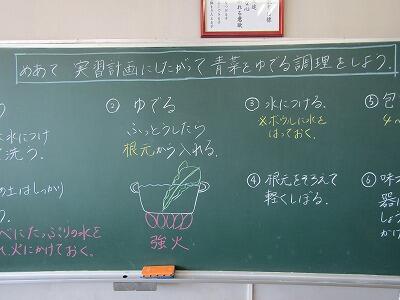 めあて 実習計画にしたがって青菜をゆでる調理をしよう.
に水につけ
て洗う.
の土はしっかり
う.
べにたっぷりの水を
れ、火にかけておく.
② ゆでる
ふっとうしたら
根元から入れる.
強火
③ 水につける.
※ボウルに水を
はっておく.
④ 根元をそろえて
軽くしぼる.
⑤ 包
⑥ 味
器に
しょう
かけ